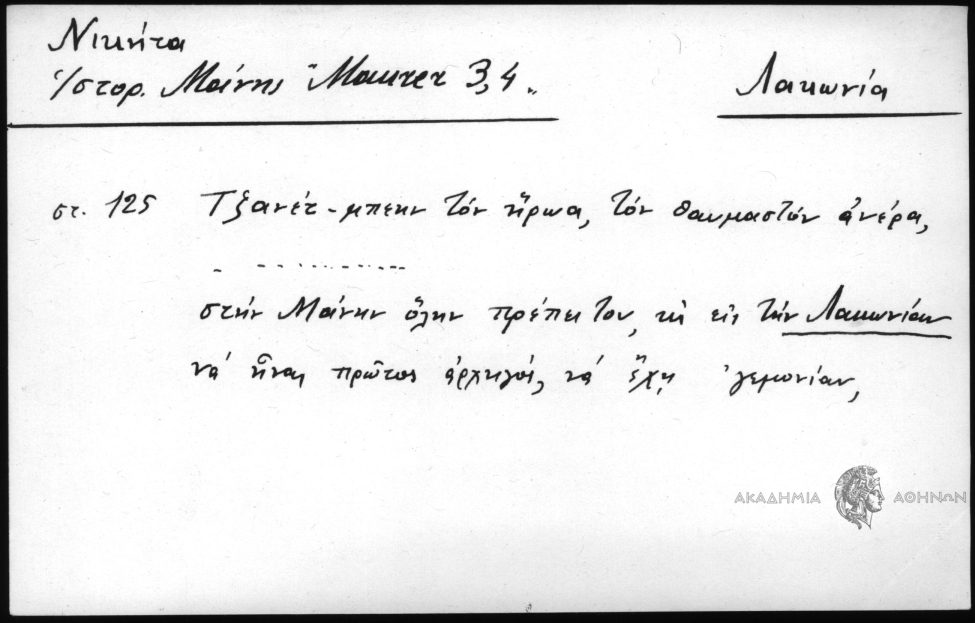 Νικήτα
Ἱστορ. Μαΐνης "Μακτετ 3,4„
Λακωνία
στ. 125 Τζανέτ-μπεην τόν ἥρωα, τόν θαυμαστόν ἀνέρα,
στήν Μαΐνην ὅλην πρέπει του, κι εἰς τήν Λακωνίαν
νά ἦναι πρῶτος ἀρχηγός, νά ἔχῃ 'γεμονίαν,
ΑΚΑΔΗΜΙΑ ΑΘΗΝΩΝ